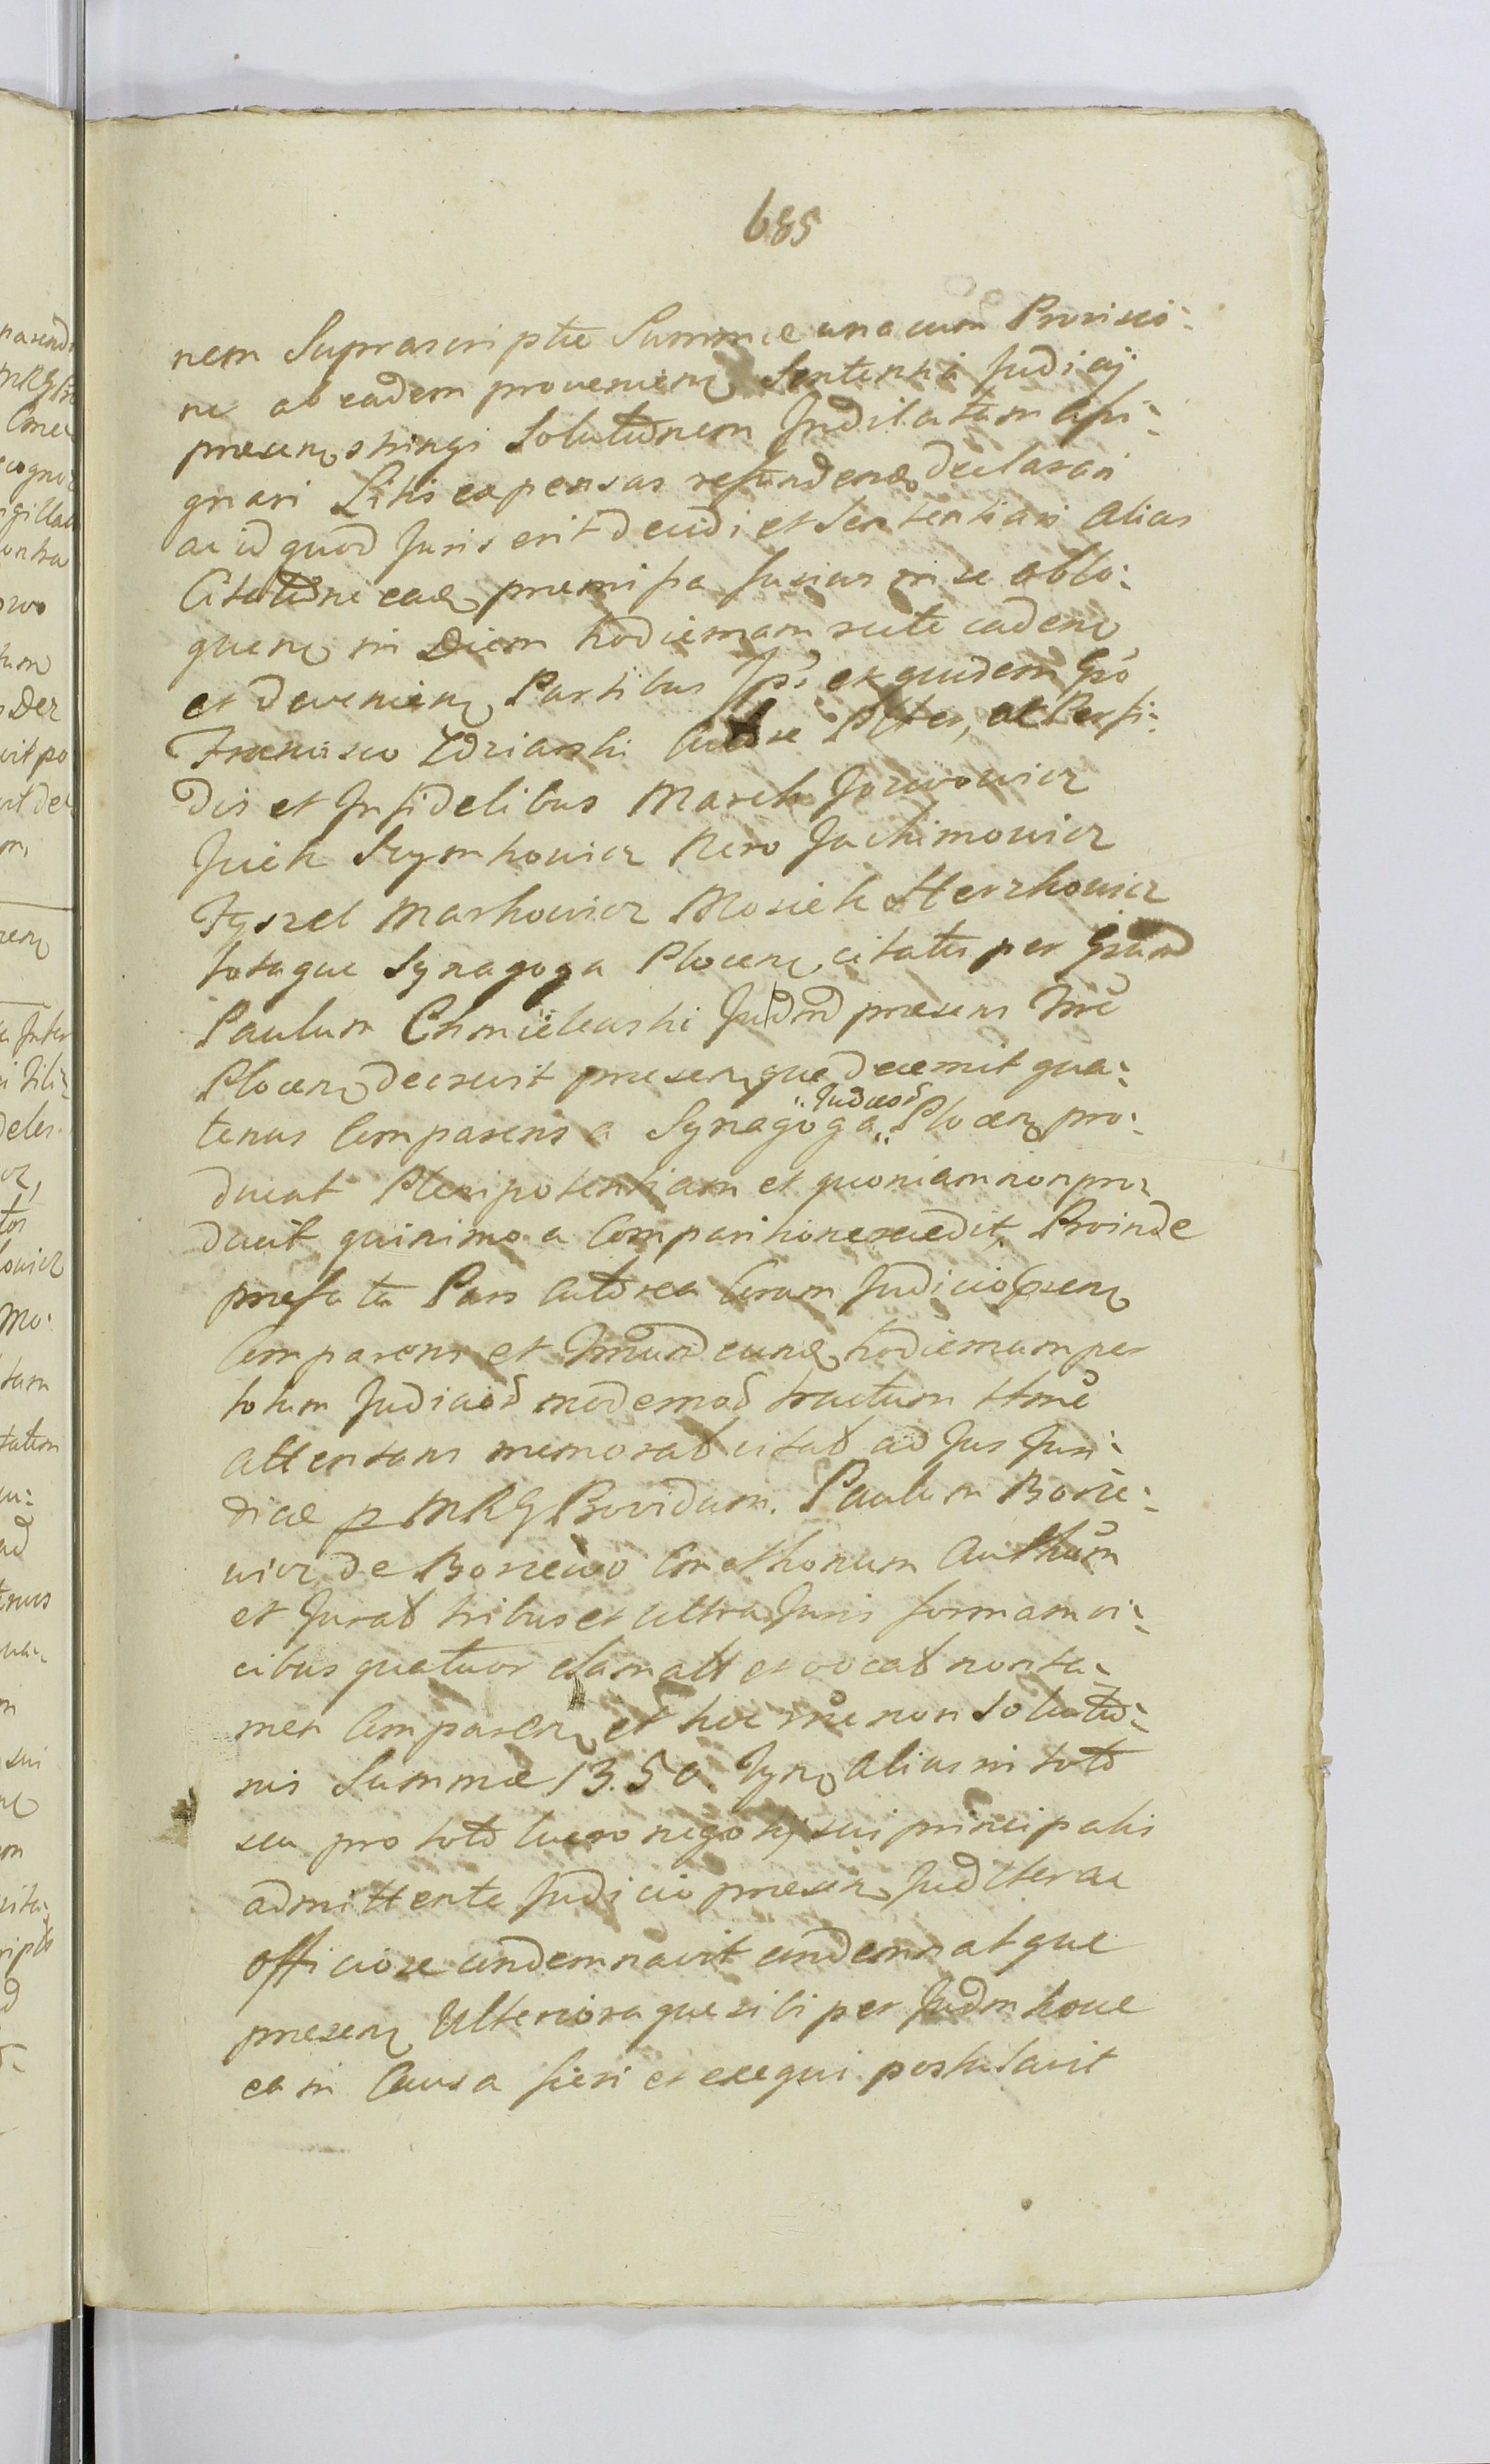 685
nem Suprascriptæ Summæ una cum Provisio-
ne ab eadem provenienք Sententia Judicij
præsenք stringi Solutionem Indilatam assi-
gnari Litis expensas refundendք declarari
ac id quod Juris erit decidi et Sententiari Alias
Citatione eadք præmissa fusius in se oblo-
quenք in Diem hodiernam recte cadenք
et devenienք Partibus Ipˢ et quidem Gso
Francisco Zdziarski Actore Plter, ac Perfi-
dis et Infidelibus Marek Jozwowicz
Jciek Szymkowicz Nero Jachimowicz
Fyszel Markowicz Mosiek Herzkowicz
totaque Synagoga Plocenք citatis per Gsum
Paulum Chmielewski Judm præsens Trre
Plocenք decrevit præsenքque decernit qua-
tenus Comparens a Synagoga Judæoꝝ Plocenք pro-
ducat Plenipotentiam et quoniam non pro-
ducit quinimo a Comparitione recedit, Proinde
præfata Pars Actorea Coram Judicio præsenք
Comparens et Tmum eundք hodiernum per
totum Judicioꝝ modernoꝝ tractum ttme
attentans memorat citat ad Jus Juri-
dice p MRG Providum Paulum Borze-
wicz de Borzewo Cmethonem Authum
et Jurat tribus et ultra Juris formam vi-
cibus quatuor clamatt et vocat non ta-
men Comparenք et hoc rne non Solutio-
nis Summæ 1350. Tynք Alias in toto
seu pro toto lucro negotij sui principalis
admittente Judicio præsenք Judlter ac
officiose condemnavit condemnatque
præsenք Ulterioraque sibi per Judm hocce
ea in Causa fieri et exequi postulavit